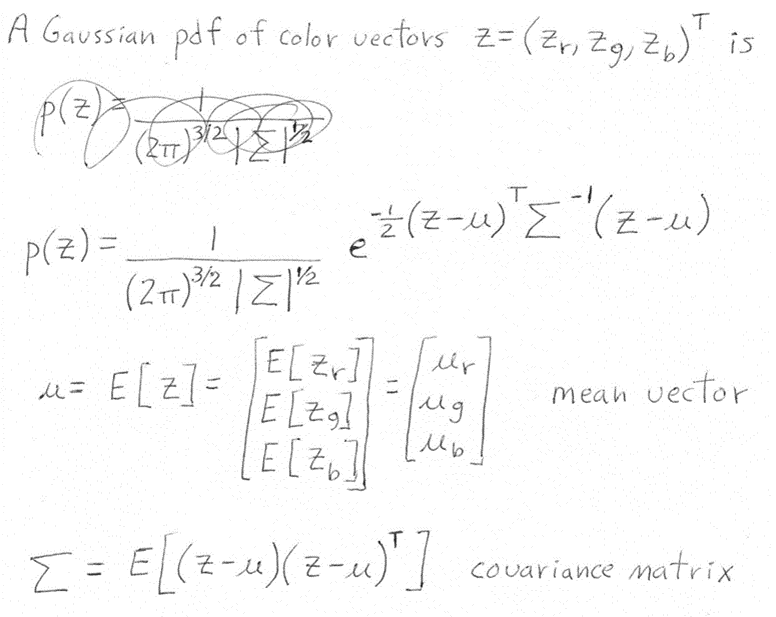 A Gaussian pdf of color vectors z=(z_r, z_g, z_b)^T is
p(z)= 1/((2π)^{3/2} |Σ|^{1/2})
p(z)= 1/((2π)^{3/2} |Σ|^{1/2}) e^{-1/2 (z-μ)^T Σ^{-1} (z-μ)}
μ= E[z]= [E[z_r] E[z_g] E[z_b]] = [μ_r μ_g μ_b] mean vector
Σ = E[(z-μ)(z-μ)^T] covariance matrix